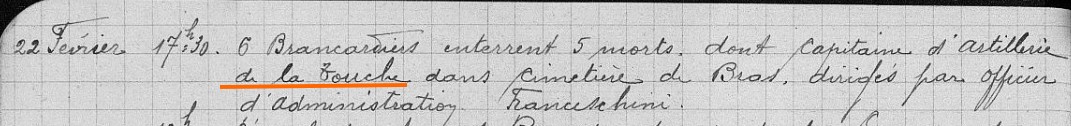 22 Février 17h30. 6 Brancardiers enterrent 5 morts. dont capitaine d'artillerie
de la Touche dans cimetière de Bras. dirigés par officier
d'administration Franceschini.